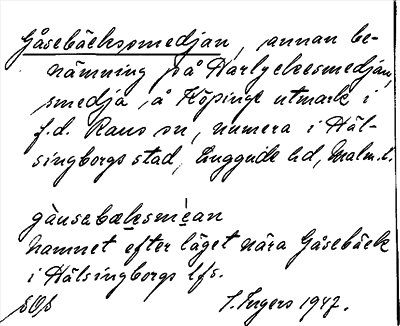 Gåsebäckssmedjan, annan be-
nämning på Harlyckesmedjan,
smedja å Köpinge utmark i
f.d. Raus sn, numera i Häl-
singborgs stad, Luggude hd, Malm. l.
gåusabæksmian
Namnet efter läget nära Gåsebäck
i Hälsingborgs lfs.
I. Ingers 1947.